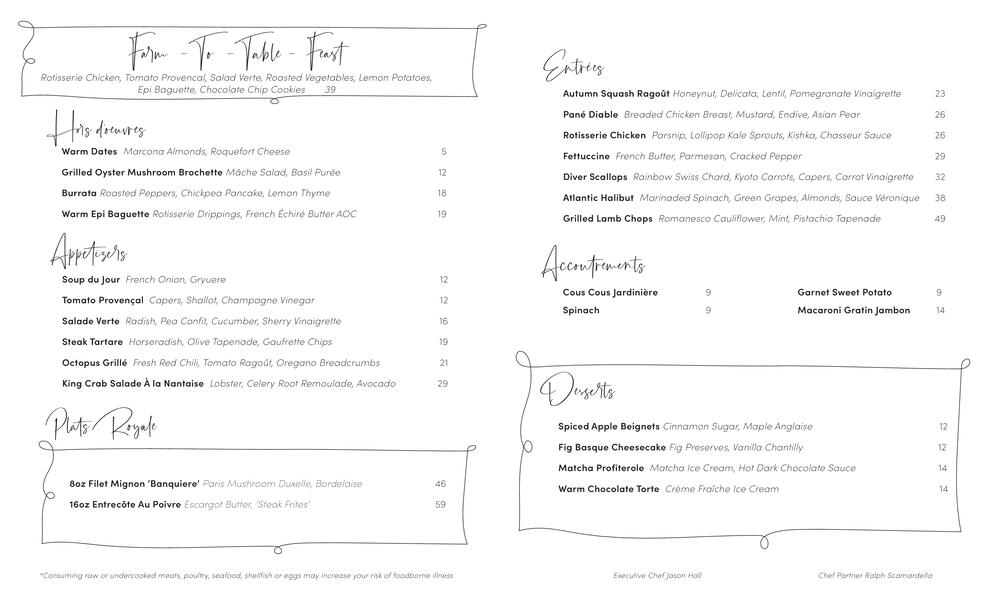 Farm - To - Table - Feast
Rotisserie Chicken, Tomato Provencal, Salad Verte, Roasted Vegetables, Lemon Potatoes,
Epi Baguette, Chocolate Chip Cookies 39
Hors d'oeuvres
Warm Dates Marcona Almonds, Roquefort Cheese 5
Grilled Oyster Mushroom Brochette Mâche Salad, Basil Purée 12
Burrata Roasted Peppers, Chickpea Pancake, Lemon Thyme 18
Warm Epi Baguette Rotisserie Drippings, French Échiré Butter AOC 19
Appetizers
Soup du Jour French Onion, Gruyere 12
Tomato Provençal Capers, Shallot, Champagne Vinegar 12
Salade Verte Radish, Pea Confit, Cucumber, Sherry Vinaigrette 16
Steak Tartare Horseradish, Olive Tapenade, Gaufrette Chips 19
Octopus Grillé Fresh Red Chili, Tomato Ragoût, Oregano Breadcrumbs 21
King Crab Salade À la Nantaise Lobster, Celery Root Remoulade, Avocado 29
Plats Royale
8oz Filet Mignon 'Banquiere' Paris Mushroom Duxelle, Bordelaise 46
16oz Entrecôte Au Poivre Escargot Butter, 'Steak Frites' 59
*Consuming raw or undercooked meats, poultry, seafood, shellfish or eggs may increase your risk of foodborne illness
Entrées
Autumn Squash Ragoût Honeynut, Delicata, Lentil, Pomegranate Vinaigrette 23
Pané Diable Breaded Chicken Breast, Mustard, Endive, Asian Pear 26
Rotisserie Chicken Parsnip, Lollipop Kale Sprouts, Kishka, Chasseur Sauce 26
Fettuccine French Butter, Parmesan, Cracked Pepper 29
Diver Scallops Rainbow Swiss Chard, Kyoto Carrots, Capers, Carrot Vinaigrette 32
Atlantic Halibut Marinaded Spinach, Green Grapes, Almonds, Sauce Véronique 38
Grilled Lamb Chops Romanesco Cauliflower, Mint, Pistachio Tapenade 49
Accoutrements
Cous Cous Jardinière 9 Garnet Sweet Potato 9
Spinach 9 Macaroni Gratin Jambon 14
Desserts
Spiced Apple Beignets Cinnamon Sugar, Maple Anglaise 12
Fig Basque Cheesecake Fig Preserves, Vanilla Chantilly 12
Matcha Profiterole Matcha Ice Cream, Hot Dark Chocolate Sauce 14
Warm Chocolate Torte Crème Fraîche Ice Cream 14
Executive Chef Jason Hall Chef Partner Ralph Scamardella